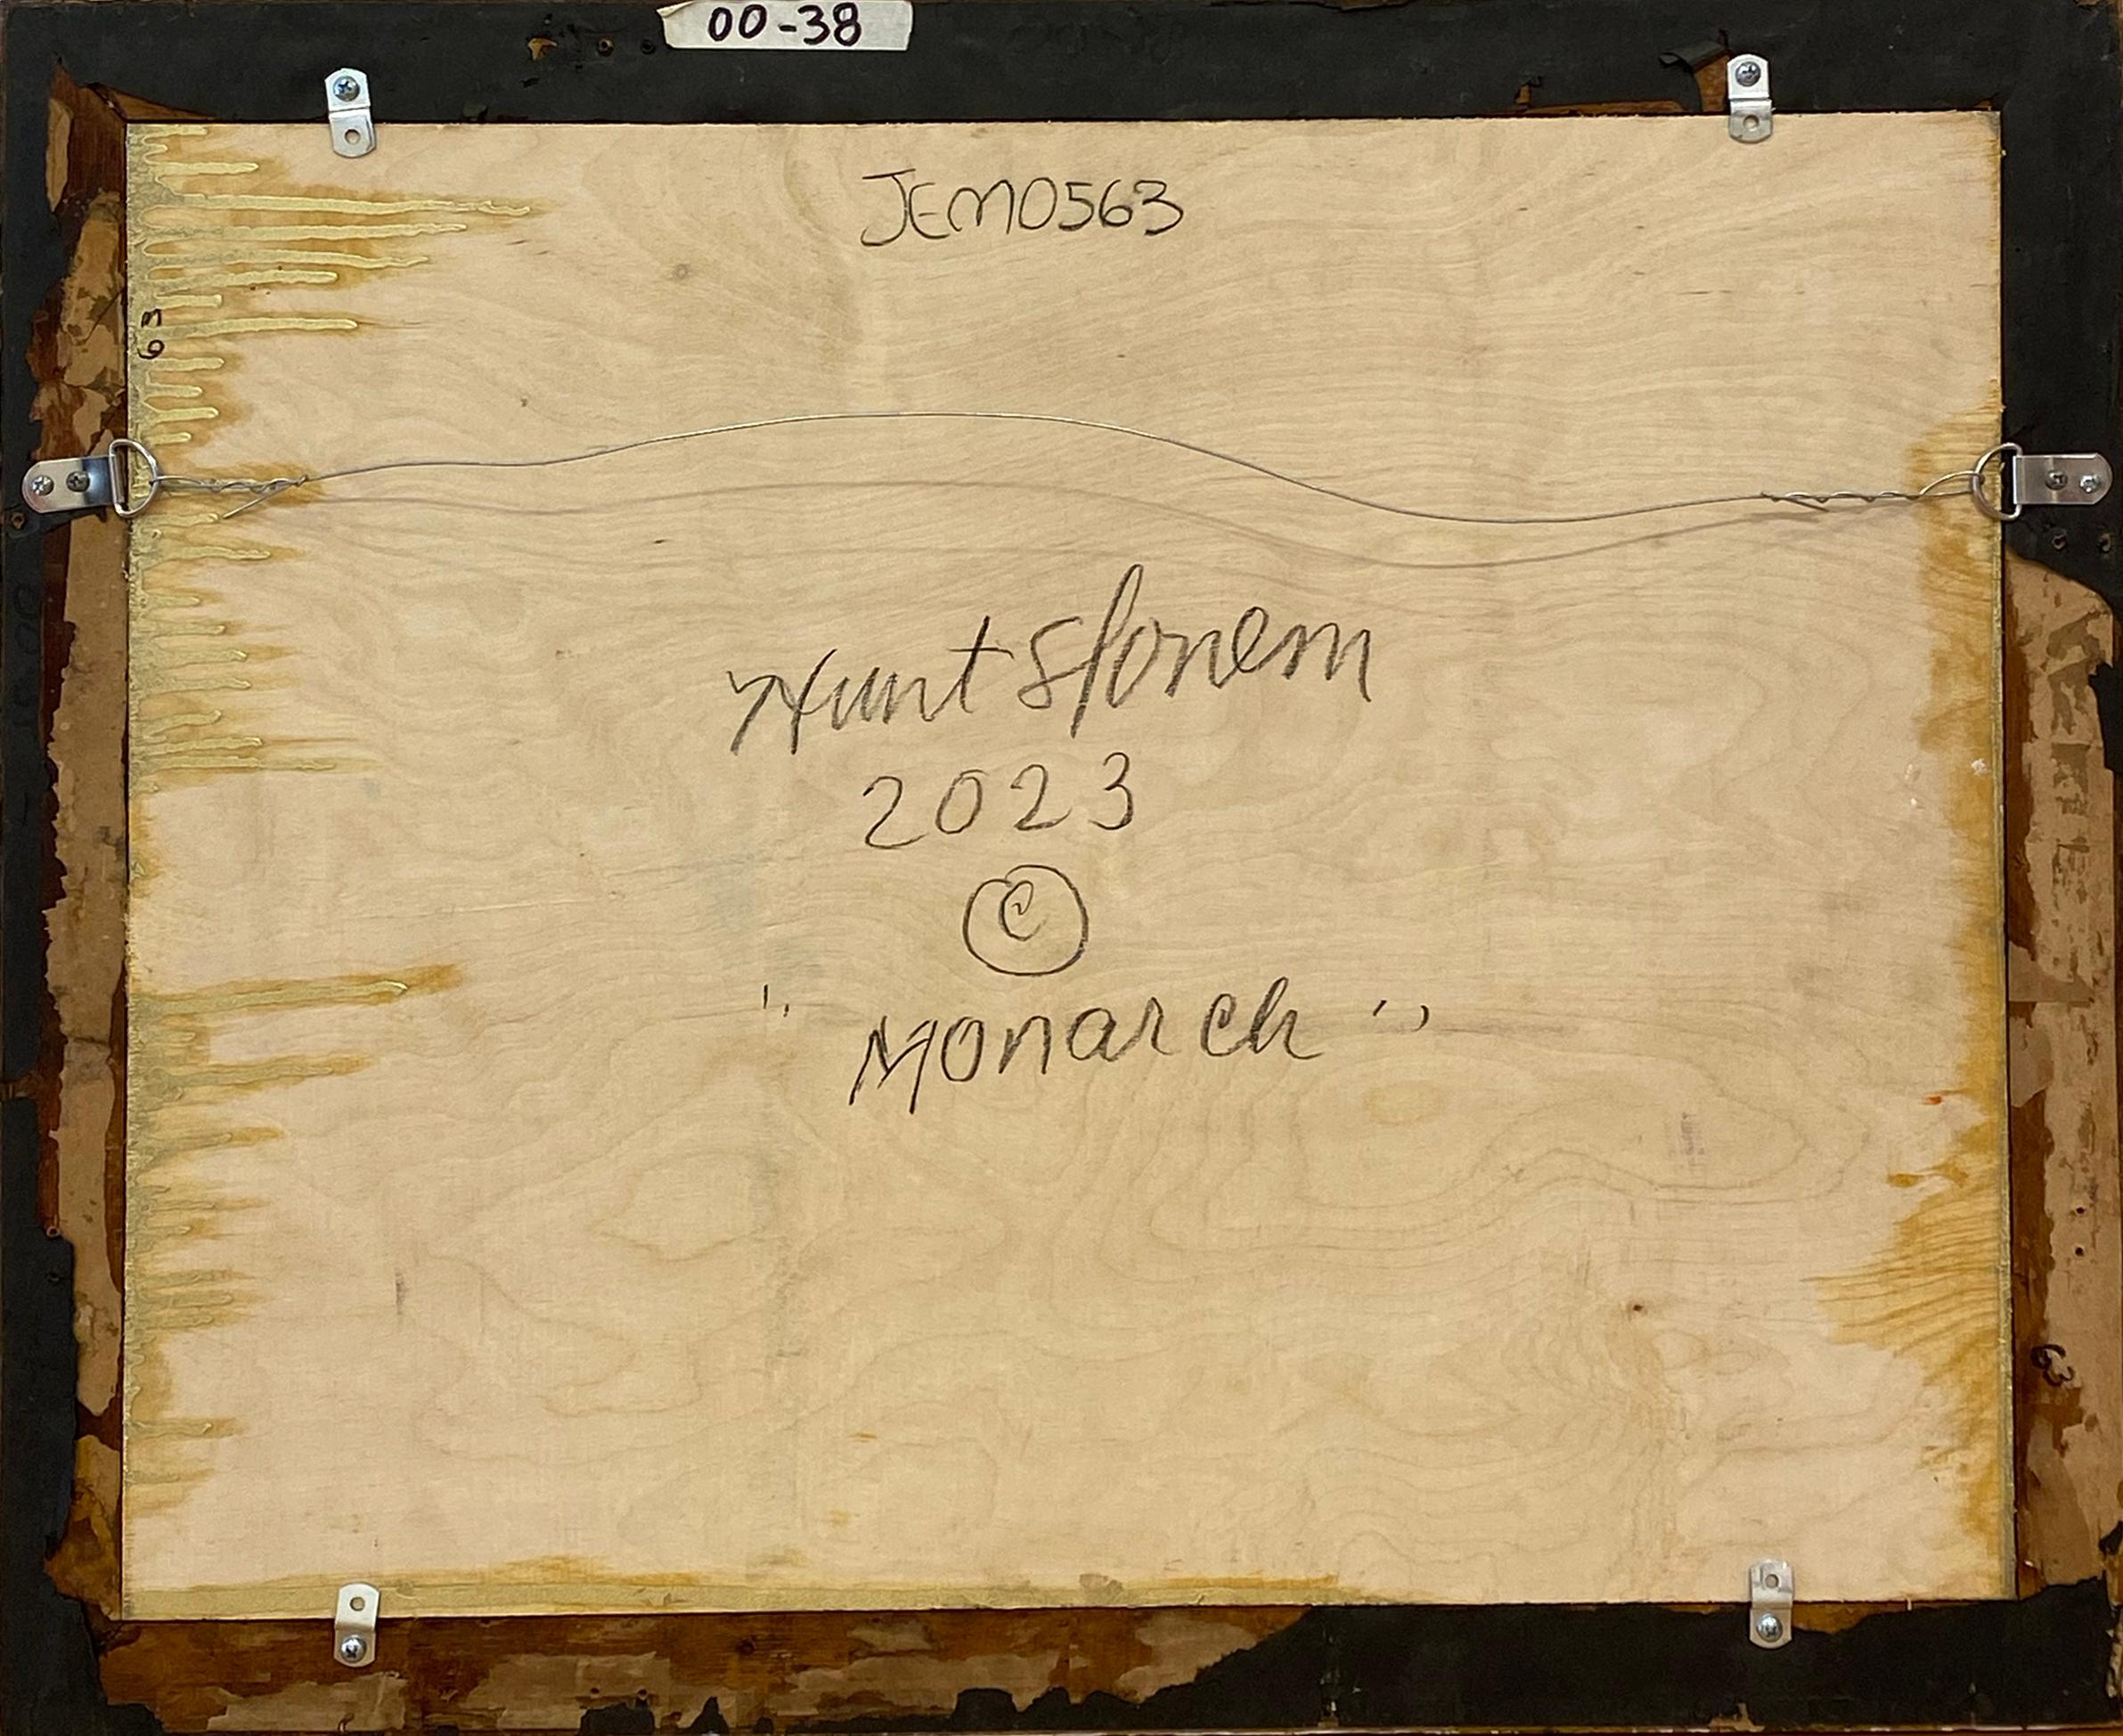 00-38
JEM0563
63
Hunt Slonem
2023
©
"Monarch"
63